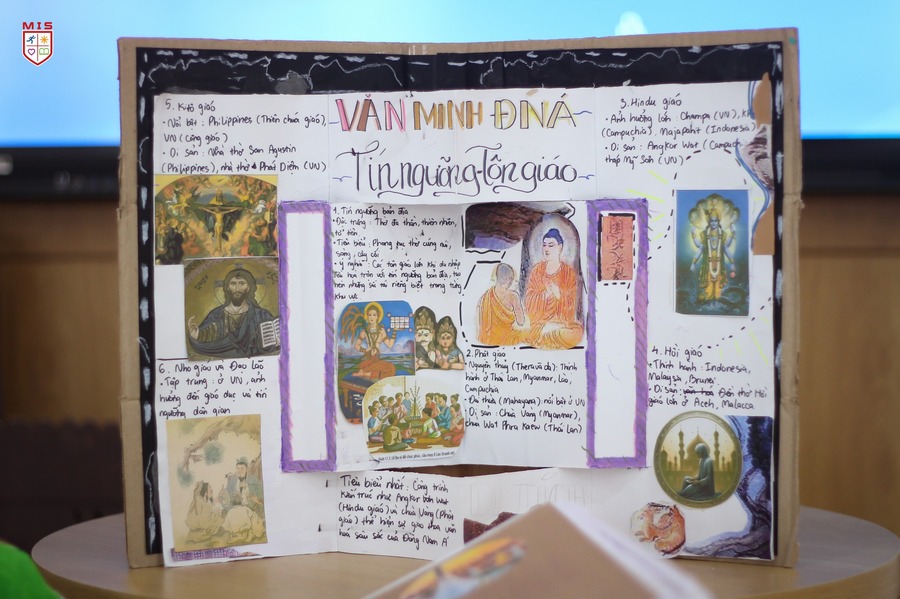 MIS
VĂN MINH ĐNÁ
Tín ngưỡng-Tôn giáo
5. Kitô giáo
• Nổi bật: Philippines (Thiên chúa giáo),
VN (Công giáo)
• Di sản: Nhà thờ San Agustin
(Philippines), nhà thờ Phát Diệm (VN)
6. Nho giáo và Đạo Lão
• Tập trung: ở VN, ảnh
hưởng đến giáo dục và tín
ngưỡng dân gian
1. Tín ngưỡng bản địa
• Đặc trưng: Thờ đa thần, thiên nhiên,
tổ tiên
• Tiêu biểu: Phong tục thờ cúng núi,
sông, cây cối
• Ý nghĩa: Các tôn giáo lớn khi du nhập
đều hoà trộn với tín ngưỡng bản địa, tạo
nên những sắc thái riêng biệt trong từng
khu vực
2. Phật giáo
• Nguyên thủy (Theravada): Thịnh
hành ở Thái Lan, Myanmar, Lào,
Campuchia
• Đại thừa (Mahayana): nổi bật ở VN
• Di sản: Chùa Vàng (Myanmar),
chùa Wat Phra Kaew (Thái Lan)
Tiêu biểu nhất: Công trình
kiến trúc như Angkor Wat
(Hindu giáo) và chùa Vàng (Phật
giáo) thể hiện sự giao thoa văn
hoá sâu sắc của Đông Nam Á
3. Hindu giáo
• Ảnh hưởng lớn: Champa (VN),
(Campuchia), Majapahit (Indonesia)
• Di sản: Angkor Wat (Campuch
tháp Mỹ Sơn (VN)
4. Hồi giáo
• Thịnh hành: Indonesia,
Malaysia, Brunei
• Di sản: Đền thờ Hồi
giáo lớn ở Aceh, Malacca